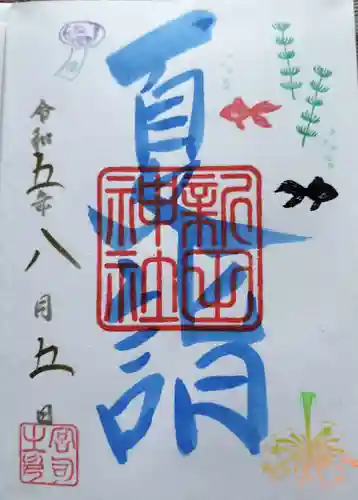 夏詣
新田
神社
令和五年八月五日
宮司
之印